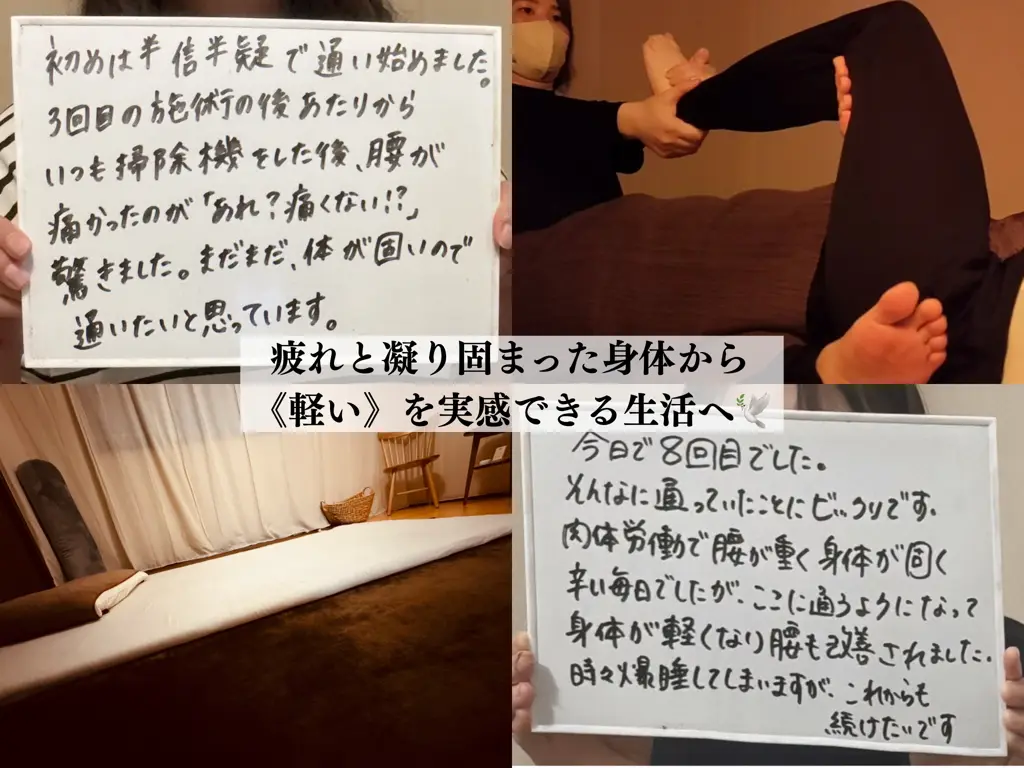 初めは半信半疑で通い始めました。
3回目の施術の後あたりから
いつも掃除機をした後、腰が
痛かったのが「あれ?痛くない!?」
驚きました。まだまだ、体が固いので
通いたいと思っています。
疲れと凝り固まった身体から
《軽い》を実感できる生活へ🕊️
今日で8回目でした。
そんなに通っていたことにビックリです。
肉体労働で腰が重く身体が固く
辛い毎日でしたが、ここに通うようになって
身体が軽くなり腰も改善されました。
時々爆睡してしまいますが、これからも
続けたいです